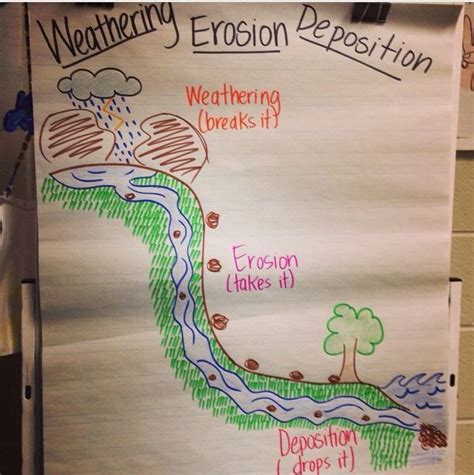 Weathering Erosion Deposition
Weathering
(breaks it)
Erosion
(takes it)
Deposition
(drops it)